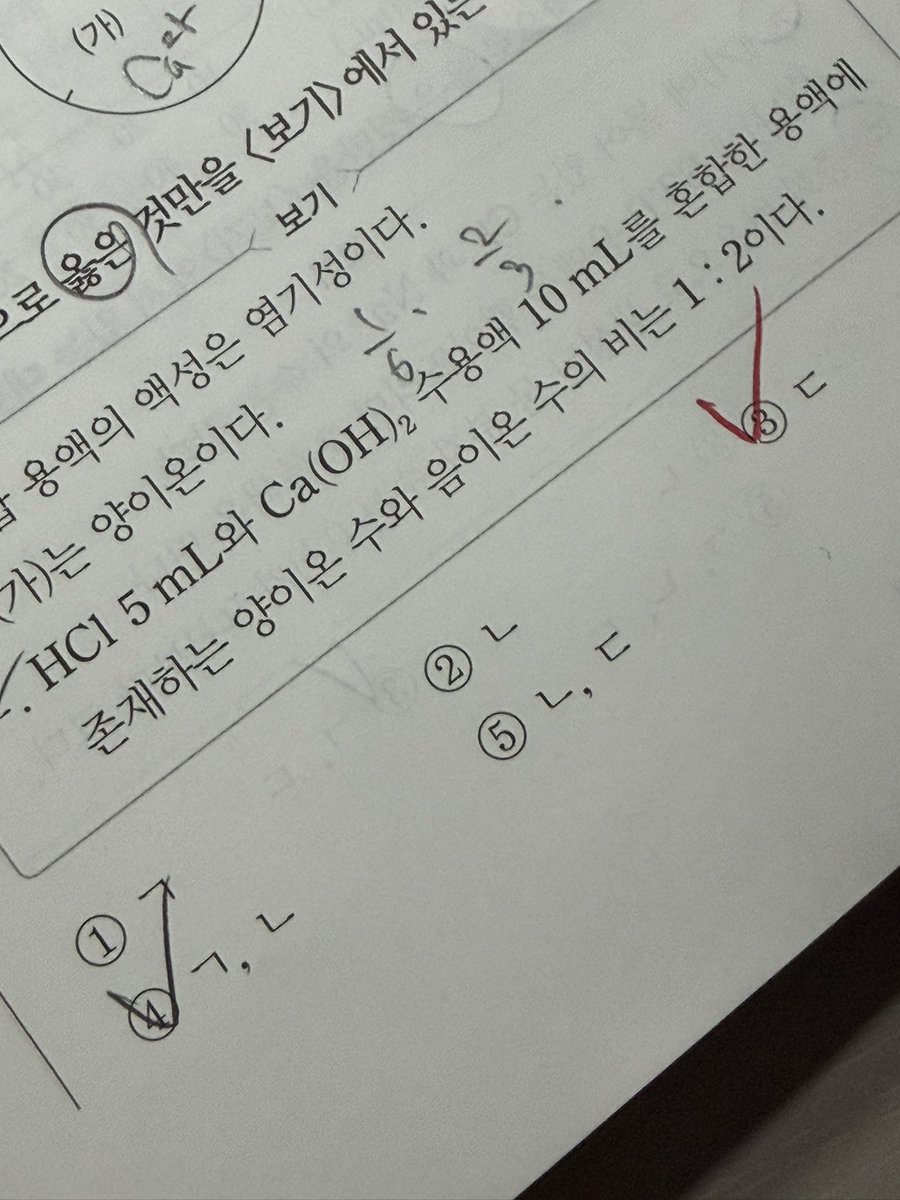 (가)
Ca²⁺
으로 옳은 것만을 <보기>에서 있는
보기
용액의 액성은 염기성이다.
(가)는 양이온이다.
1/6, 2/3
HCl 5 mL와 Ca(OH)₂ 수용액 10 mL를 혼합한 용액에
존재하는 양이온 수와 음이온 수의 비는 1 : 2이다.
① ㄱ
② ㄴ
③ ㄷ
④ ㄱ, ㄴ
⑤ ㄴ, ㄷ